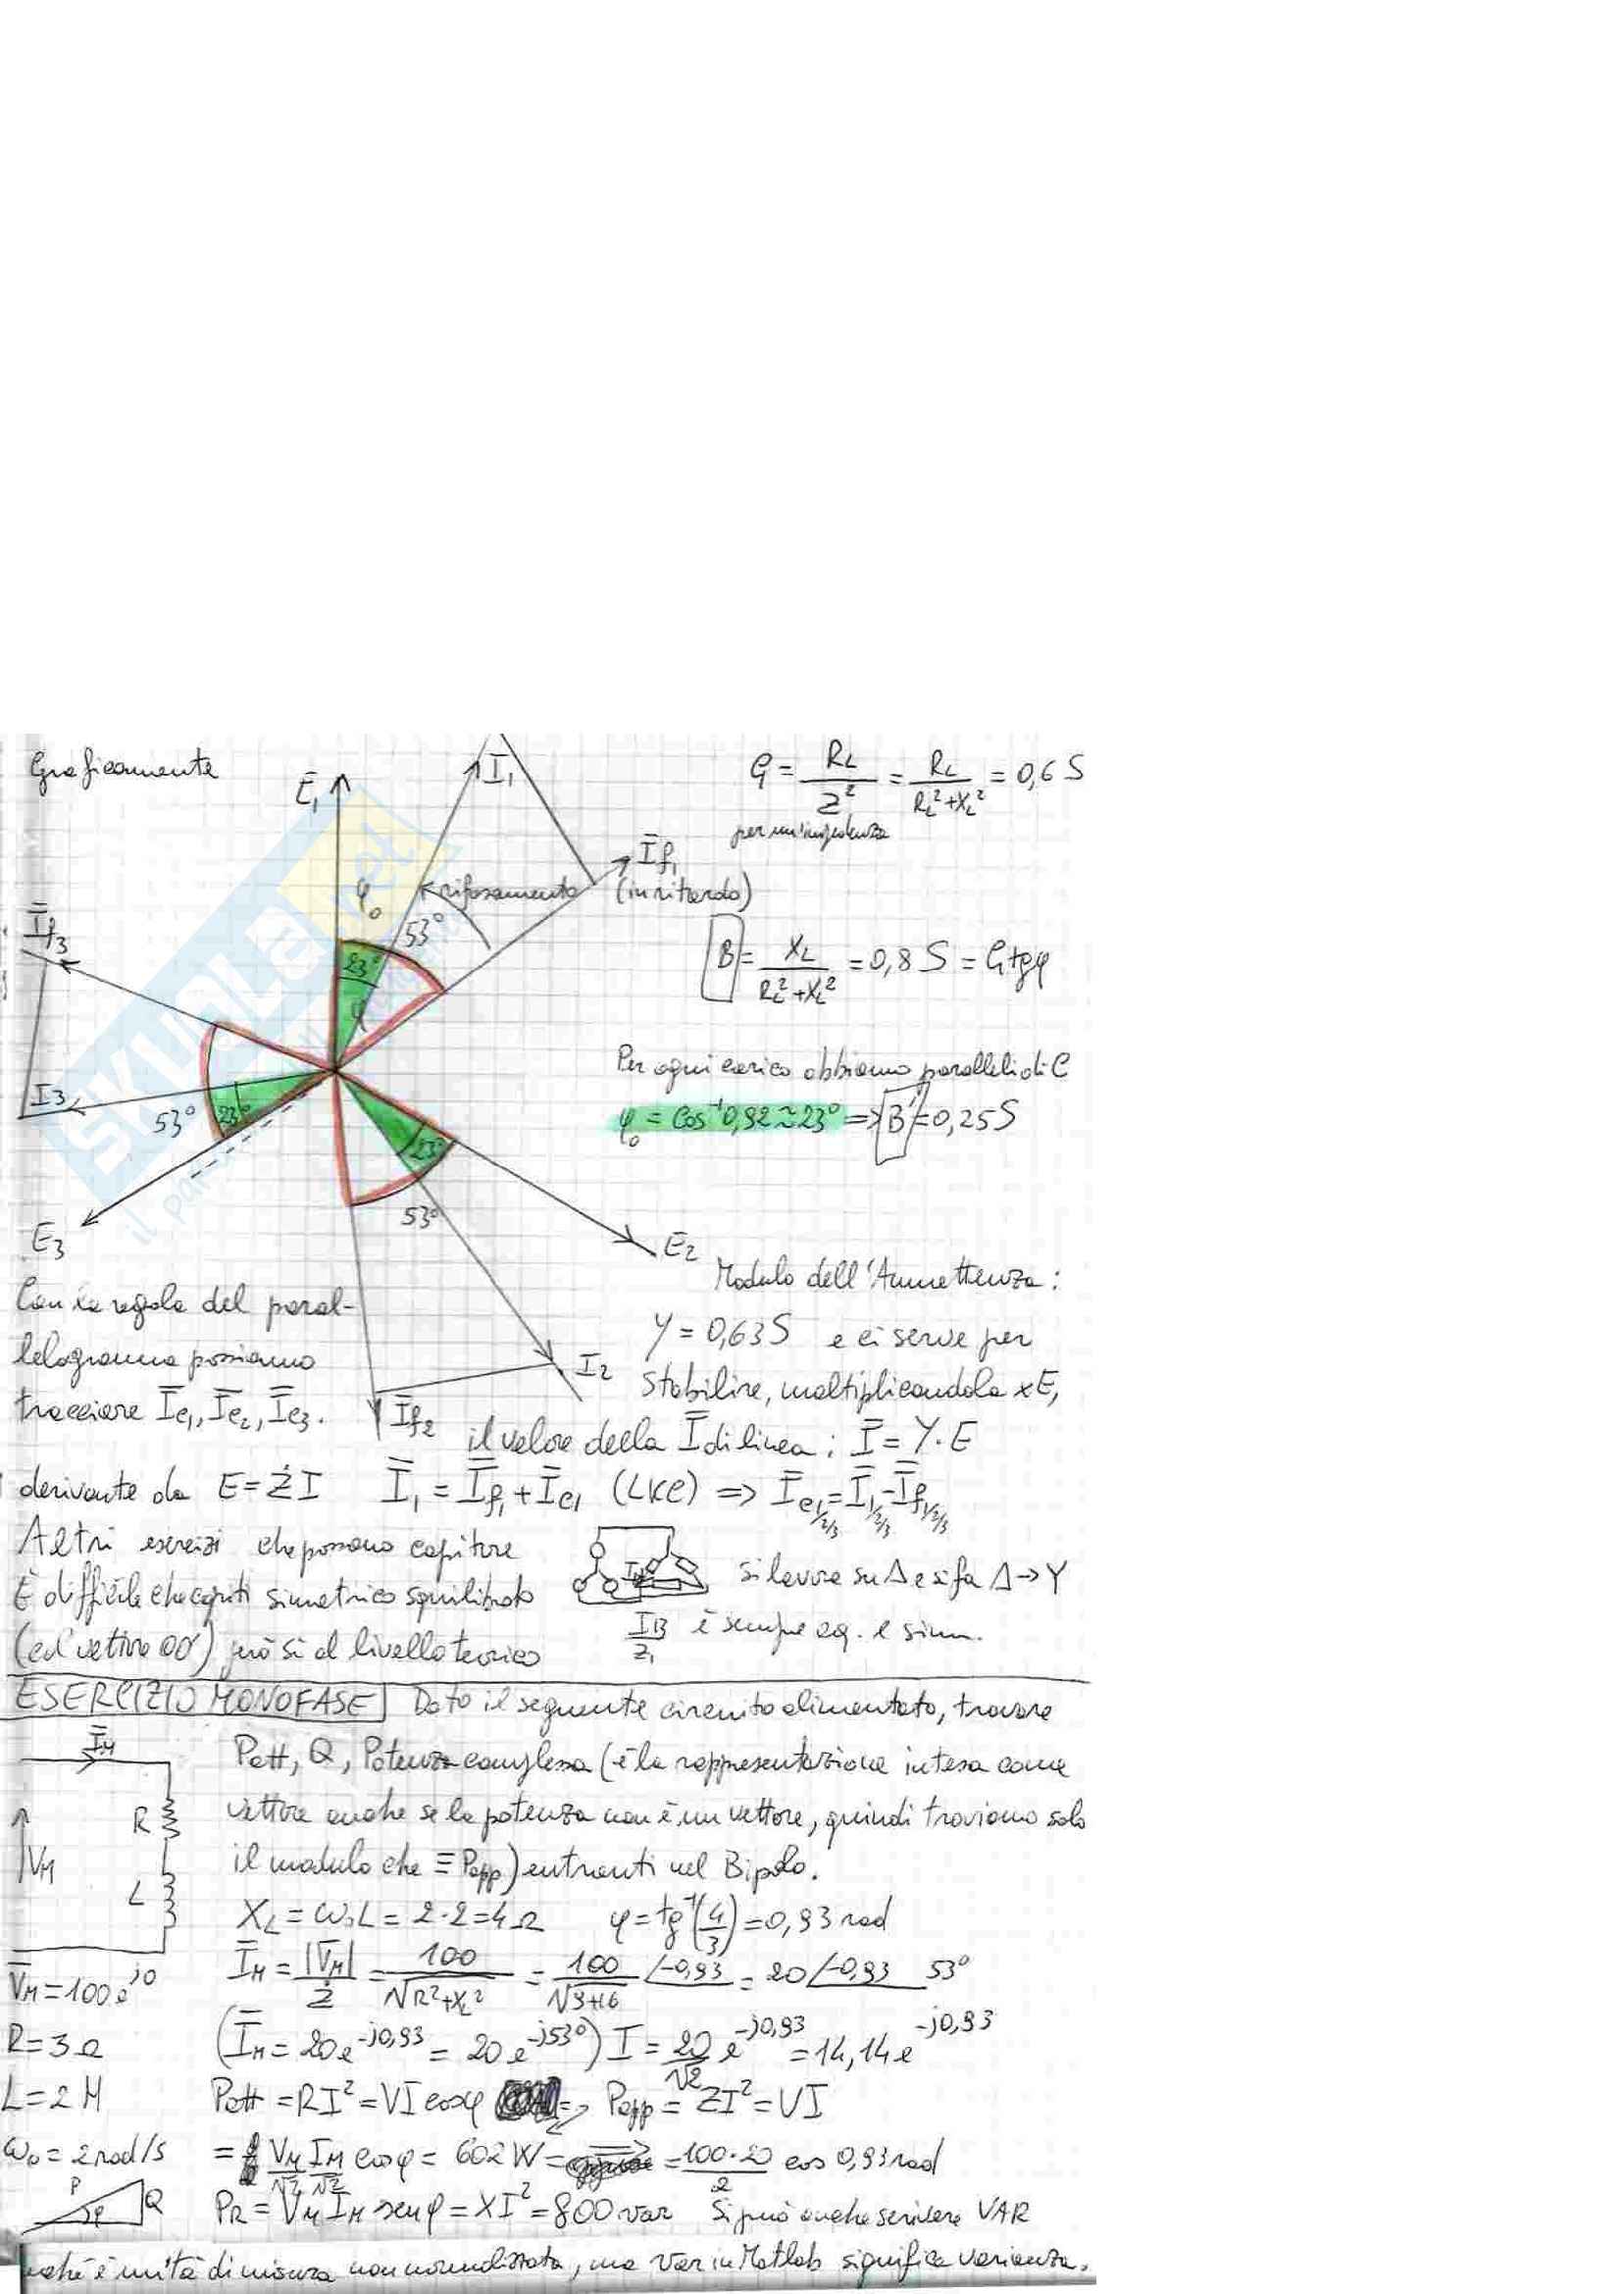 Graficamente
Ē₁
Ī₁
G = R_L / Z² = R_L / (R_L² + X_L²) = 0,6 S
per un'impedenza
Īf₁
(in ritardo)
rifasamento
φ₀
53°
23°
φ
Īf₃
B = X_L / (R_L² + X_L²) = 0,8 S = G tgφ
Per ogni carico abbiamo paralleli di C
φ₀ = cos⁻¹ 0,92 ≃ 23° => B' = 0,25 S
I₃
53°
23°
23°
53°
E₃
E₂
SKUOLA.net
Con la regola del paral-
lelogramma possiamo
tracciare Īc₁, Īc₂, Īc₃.
I₂
Īf₂
Modulo dell'Ammettenza:
Y = 0,63 S e ci serve per
stabilire, moltiplicandola x E,
il valore della Ī di linea: Ī = Y·E
derivante da E = ŻI Ī₁ = Īf₁ + Īc₁ (LKC) => Īc₁/₂/₃ = Ī₁/₂/₃ - Īf₁/₂/₃
Altri esercizi che possono capitare
È difficile che capiti simmetrico squilibrato
però sì al livello teorico
si lavora su Δ e si fa Δ→Y
è sempre eq. e simm.
ESERCIZIO MONOFASE Dato il seguente circuito alimentato, trovare
Patt, Q, Potenza complessa (è la rappresentazione intesa come
vettore anche se la potenza non è un vettore, quindi troviamo solo
il modulo che ≡ Papp) entranti nel Bipolo.
Ī_M
R
V_M
L
X_L = ω₀L = 2·2 = 4Ω φ = tg⁻¹(4/3) = 0,93 rad
V̄_M = 100 e^j0
Ī_M = |V̄_M| / Ż = 100 / √(R² + X_L²) = 100 / √(9+16) /-0,93 = 20 /-0,93 53°
R = 3 Ω
(Ī_M = 20 e^-j0,93 = 20 e^-j53°) I = 20/√2 e^-j0,93 = 14,14 e^-j0,93
L = 2 H
Patt = RI² = VI cosφ => Papp = ZI² = VI
ω₀ = 2 rad/s
= V_M/√2 I_M/√2 cosφ = 602 W = 100·20 / 2 cos 0,93 rad
P
φ
Q
P_R = V_M I_M senφ = XI² = 800 var Si può anche scrivere VAR
è unità di misura non normalizzata, ma Var in Matlab significa varianza.